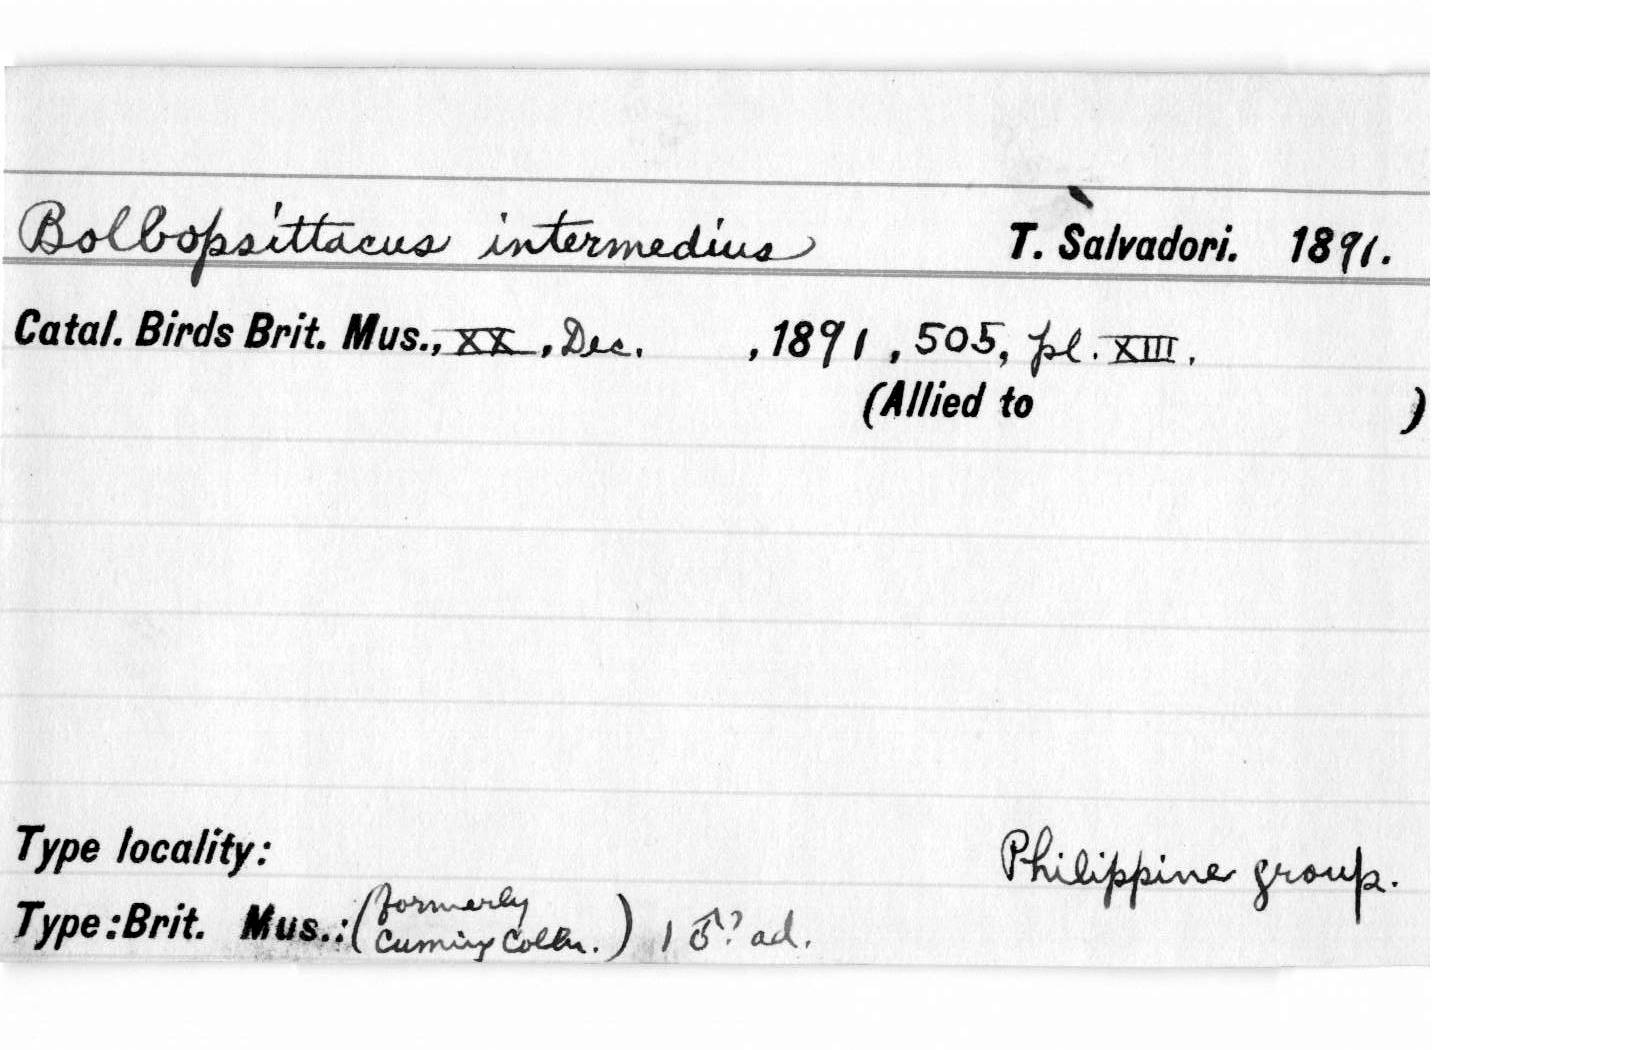 Bolbopsittacus intermedius T. Salvadori. 1891.
Catal. Birds Brit. Mus., XX, Dec. , 1891, 505, pl. XIII.
(Allied to )
Type locality: Philippine group.
Type: Brit. Mus.: (formerly Cuming Colln.) 1 ♂? ad.